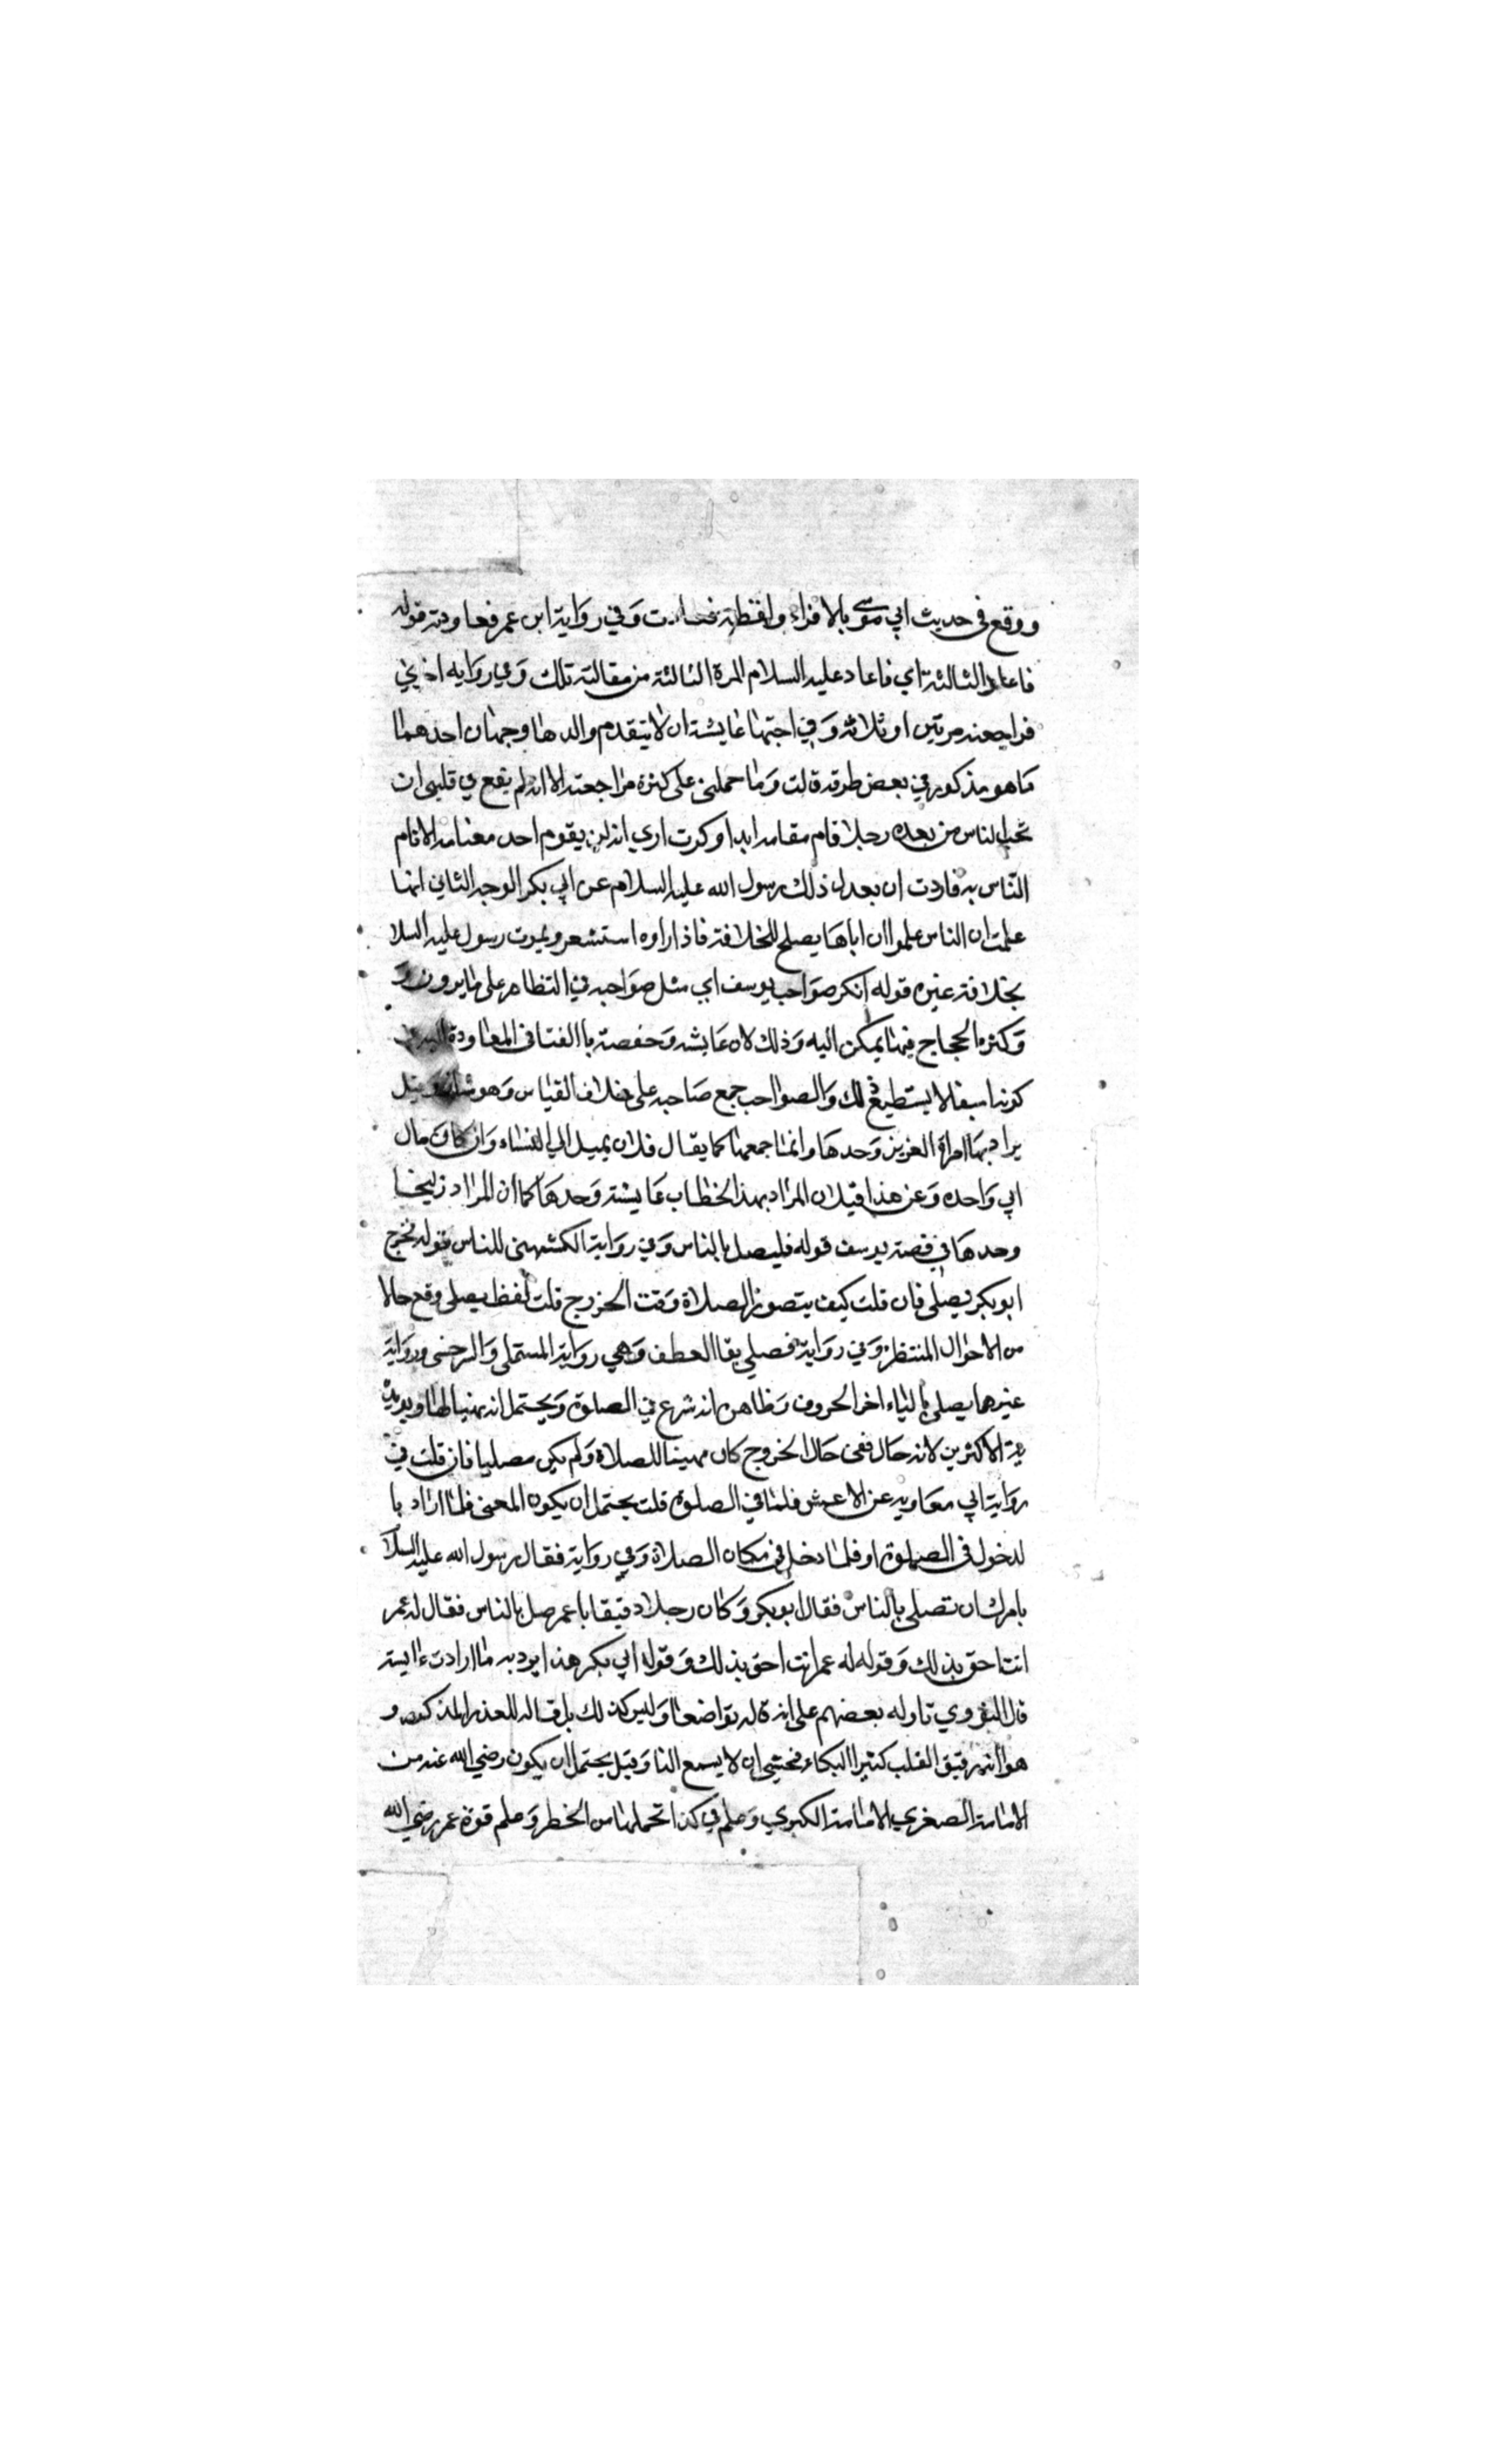 ووقع في حديث ابي موسى بالافراد ولفظه فعادت وفي رواية ابن عمر فعاودته قوله
فاعاد الثالثة اي فاعاد عليه السلام المرة الثالثة من مقالته تلك وفي روايه اخري
فراجعنه مرتين او ثلاثه وفي اجتها عايشة ان لا يتقدم والدها وجهان احدهما
ما هو مذكور في بعض طرقه قالت وما حملني على كثرة مراجعته الا انه لم يقع في قلبي ان
تحب الناس من بعده رجلا قام مقامه ابدا وكرت اري انه لن يقوم احد معنامه الا تام
الناس به فاردت ان بعدل ذلك رسول الله عليه السلام عن ابي بكر الوجه الثاني انها
علمت ان الناس علموا ان اباها يصلح للخلافة فاذا راوه استشعرو بموت رسول عليه السلا
بخلافة غيره قوله انكن صواحب يوسف اي مثل صواحبه في التظاهر على ما يرون و
وكثرة الحجاج فيما يمكن اليه وذلك لان عايشه وحفصة بالفتا في المعاودة اليه
كونه اسيفا لا يستطيع ذلك والصواحب جمع صاحبه على خلاف القياس وهو شاذ وقيل
يراد بها امراة العزيز وحدها وانما جمعها كما يقال فلان يميل الي النساء وان كان مال
الي واحده وعن هذا قيل ان المراد بهذا الخطاب عايشة وحدها كما ان المراد زليخا
وحدها في قصة يوسف قوله فليصل بالناس وفي رواية الكشمهني للناس قوله فخرج
ابو بكر يصلي فان قلت كيف يتصور الصلاة وقت الخروج قلت لفظ يصلي وقع حالا
من الاحوال المنتظره وفي رواية فصلي بفا العطف وهي رواية المستملي والسرخسي ورواية
غيرهما يصلي بالياء اخر الحروف وظاهره انه شرع في الصلوة ويحتمل انه تهنيا لها ويويده
ية الاكثرين لانه حال ففي حال الخروج كان مهيئا للصلاة ولم يكن مصليا فان قلت في
رواية ابي معاوية عن الاعمش فلما في الصلوة قلت يحتمل ان يكون المعنى فلما اراد با
لدخول في الصلوة او فلما دخل في مكان الصلاة وفي رواية فقال رسول الله عليه السلا
يامرك ان تصلي بالناس فقال ابو بكر وكان رجلا دقيقا يا عمر صل بالناس فقال له عمر
انت احق بذلك وقوله له عمر انت احق بذلك وقول ابي بكر هذا يرد به ما ارادت عايسته
قال النووي تاوله بعضهم على انه قاله تواضعا وليس كذلك بل قاله للعذر المذكور و
هو انه رقيق القلب كثير البكاء فخشي ان لا يسمع النا وقيل يحتمل ان يكون رضي الله عنه من
الامامة الصغري الامامة الكبري وعلم في كذا تحملها من الخطر وعلم قوة عمر رضي الله